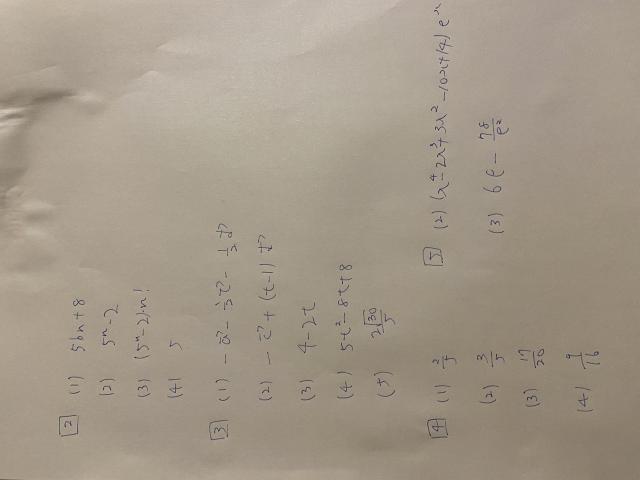 2 (1) 56n+8
(2) 5ⁿ-2
(3) (5ⁿ-2)・n!
(4) 5
3 (1)
(2) -c⃗+(t-1)d⃗
(3) 4-2t
(4) 5t²-8t+8
(5) 2√30/5
4 (1) 2/5
(2) 3/5
(3) 17/20
(4) 9/16
5 (2) (x⁴-2x³+3x²-10x+14)eˣ
(3) 6e-78/e²